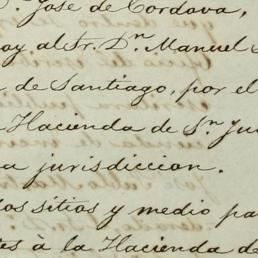 José de Cordova,
al Sr. Dn. Manuel
de Santiago, por el
Hacienda de Sn. Ju
a jurisdiccion.
los sitios y medio pa
tes à la Hacienda de